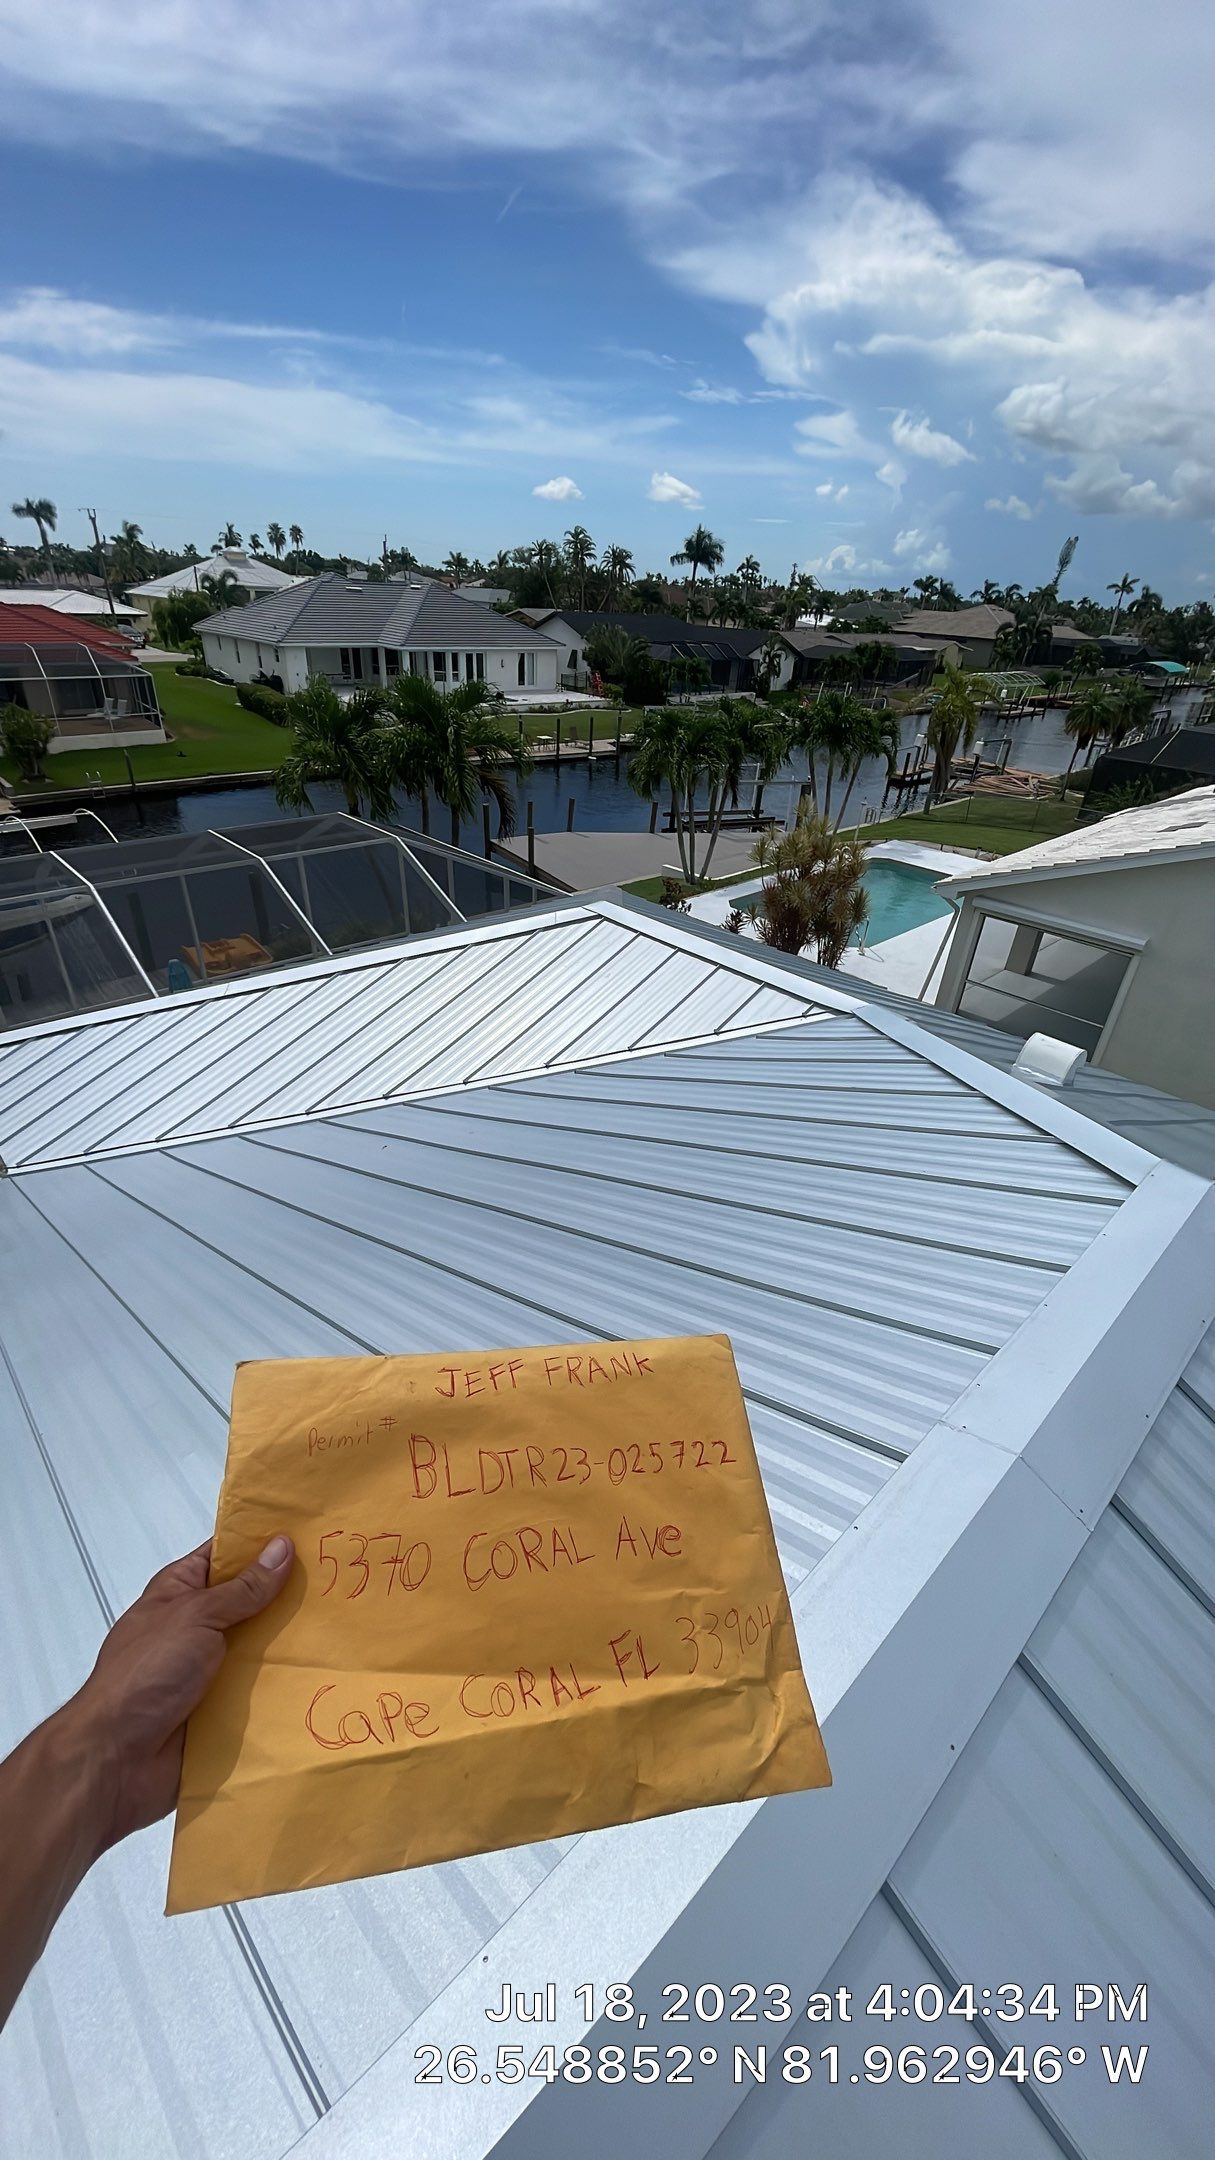 JEFF FRANK
Permit #
BLDTR23-025722
5370 CORAL Ave
Cape CORAL FL 33904
Jul 18, 2023 at 4:04:34 PM
26.548852° N 81.962946° W